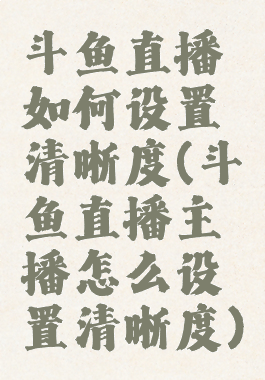 斗鱼直播
如何设置
清晰度(斗
鱼直播主
播怎么设
置清晰度)